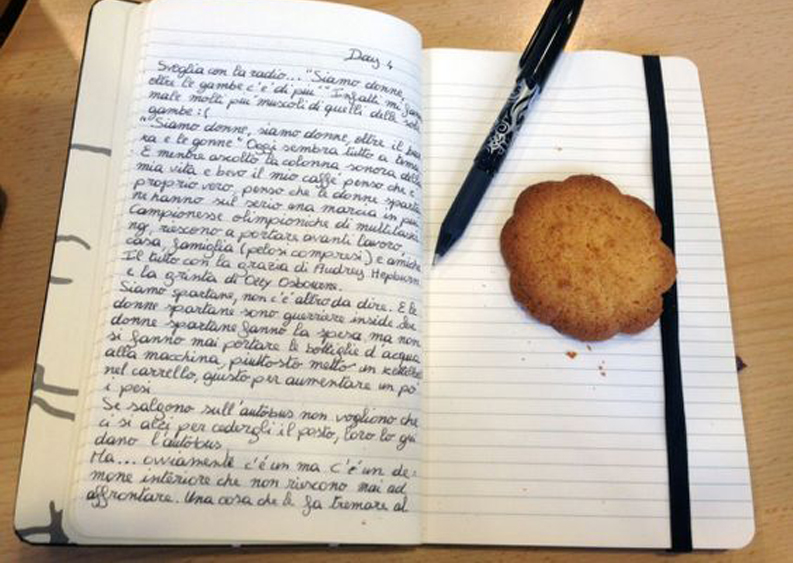 Day 4
Sveglia con la radio... "Siamo donne
oltre le gambe c'e' di piu'" Infatti mi fanno
male molti piu' muscoli di quelli delle sole
gambe :(
"Siamo donne, siamo donne, oltre il
e le gonne" Oggi sembra tutto a tema
E mentre ascolto la colonna sonora della
mia vita e bevo il mio caffe' penso che e'
proprio vero, penso che le donne spartane
ne hanno sul serio una marcia in piu'.
Campionesse olimpioniche di multitaski
ng, riescono a portare avanti lavoro
casa, famiglia (pelosi compresi) e amiche
Il tutto con la grazia di Audrey Hepburn
e la grinta di Ozzy Osbourne.
Siamo spartane, non c'e' altro da dire. E le
donne spartane sono guerriere inside. Le
donne spartane fanno la spesa, ma non
si fanno mai portare le bottiglie d'acqua
alla macchina, piuttosto metto un kettlebell
nel carrello, giusto per aumentare un po'
i pesi.
Se salgono sull'autobus non vogliono che
ci si alzi per cedergli il posto, loro lo gui
dano l'autobus
Ma... ovviamente c'e' un ma c'e' un de-
mone interiore che non riescono mai ad
affrontare. Una cosa che le fa tremare al